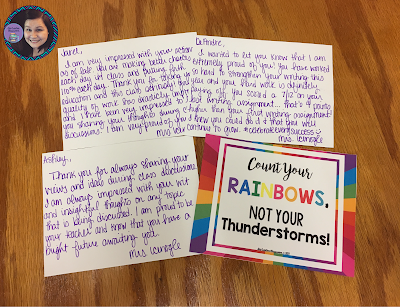 Janel,
I am very impressed with your actions
as of late. You are making better choices
each day in class and putting forth
100% each day. Thank you for taking your
education and this class seriously! The
quality of work has drastically improved
and I have been very impressed to hear
you sharing your thoughts during
discussions! I am very proud of you!
Mrs
DeAndre,
I wanted to let you know that I am
extremely proud of you! You have worked
so hard to strengthen your writing this
year and your hard work is definitely
paying off! You scored a 7/12 on your
last writing assignment... that's 4 points
higher than your first writing assignment
I knew you could do it & that you will
continue to grow. #celebrateeverysuccess
Mrs. Iannogle
Ashley,
Thank you for always sharing your
views and ideas during class discussions.
I am always impressed with your wit
and insightful thoughts on any topic
that is being discussed. I am proud to be
your teacher and know that you have a
bright future awaiting you.
Mrs. Iannogle
Count Your
RAINBOWS,
NOT YOUR
Thunderstorms!